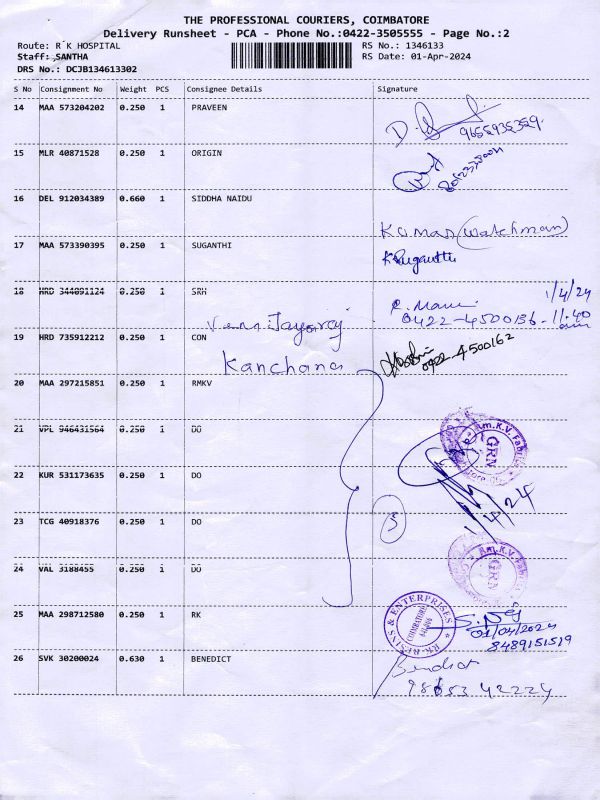 THE PROFESSIONAL COURIERS, COIMBATORE
Delivery Runsheet - PCA - Phone No.:0422-3505555 - Page No.:2
Route: R K HOSPITAL RS No.: 1346133
Staff: SANTHA RS Date: 01-Apr-2024
DRS No.: DCJB134613302
S No Consignment No Weight PCS Consignee Details Signature
14 MAA 573204202 0.250 1 PRAVEEN
9655935359
15 MLR 40871528 0.250 1 ORIGIN
16 DEL 912034389 0.660 1 SIDDHA NAIDU
Kumar (Watchman)
17 MAA 573390395 0.250 1 SUGANTHI
K Suganthi
18 HRD 344091124 0.250 1 SRH
1/4/24
0422-4500136-11.40 am
Jayaraj
19 HRD 735912212 0.250 1 CON
0422-4500162
Kanchana
20 MAA 297215851 0.250 1 RMKV
21 VPL 946431564 0.250 1 DO
GRN
22 KUR 531173635 0.250 1 DO
1/4/24
23 TCG 40918376 0.250 1 DO
5
24 VAL 3188455 0.250 1 DO
GRN
25 MAA 298712580 0.250 1 RK
RK RESINS & ENTERPRISES
COIMBATORE
01/04/2024
8489151519
26 SVK 30200024 0.630 1 BENEDICT
Benedict
98653 42224